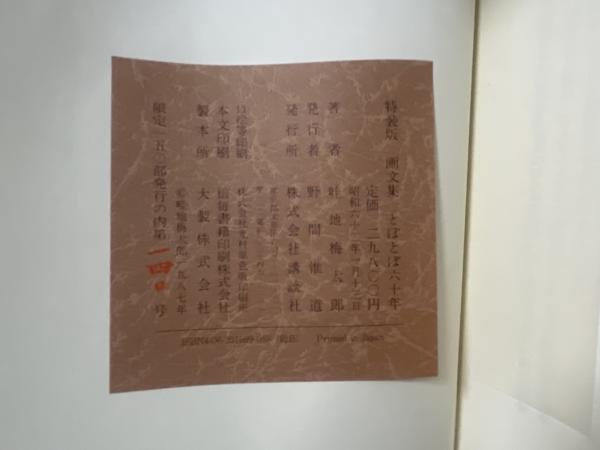 特装版 画文集 とぼとぼ六十年
定価 二九八〇〇円
昭和六十二年一月十三日
著者 畦地梅太郎
発行者 野間惟道
発行所 株式会社講談社
本文印刷 信毎書籍印刷株式会社
製本所 大製株式会社
©畦地梅太郎 一九八七年
限定一五〇部発行の内第 一四〇 号
Printed in Japan